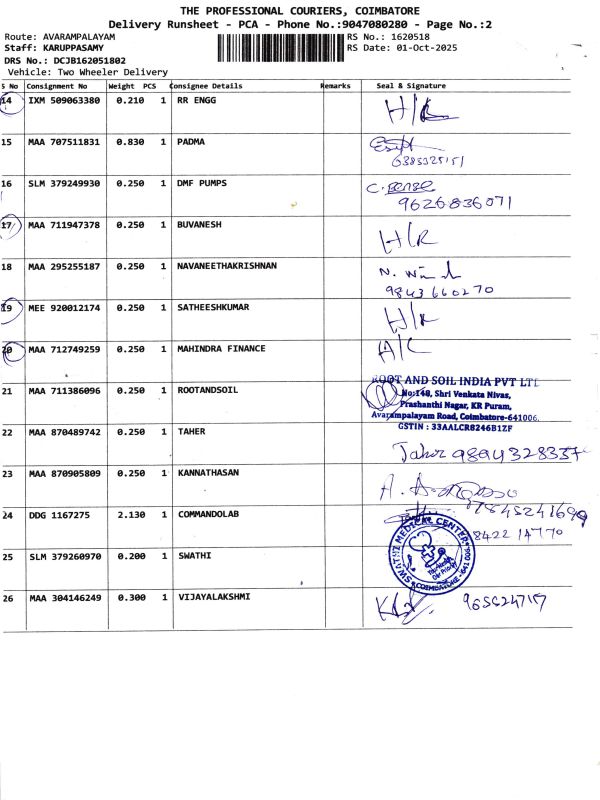 THE PROFESSIONAL COURIERS, COIMBATORE
Delivery Runsheet - PCA - Phone No.:9047080280 - Page No.:2
Route: AVARAMPALAYAM RS No.: 1620518
Staff: KARUPPASAMY RS Date: 01-Oct-2025
DRS No.: DCJB162051802
Vehicle: Two Wheeler Delivery
S No Consignment No Weight PCS Consignee Details Remarks Seal & Signature
14 IXM 509063380 0.210 1 RR ENGG H/K
15 MAA 707511831 0.830 1 PADMA
6385325151
16 SLM 379249930 0.250 1 DMF PUMPS
9626836071
17 MAA 711947378 0.250 1 BUVANESH H/R
18 MAA 295255187 0.250 1 NAVANEETHAKRISHNAN
9843660270
19 MEE 920012174 0.250 1 SATHEESHKUMAR H/K
20 MAA 712749259 0.250 1 MAHINDRA FINANCE A/C
21 MAA 711386096 0.250 1 ROOTANDSOIL
ROOT AND SOIL INDIA PVT LTD
No:148, Shri Venkata Nivas,
Prashanthi Nagar, KR Puram,
Avarampalayam Road, Coimbatore-641006.
GSTIN : 33AALCR8246B1ZF
22 MAA 870489742 0.250 1 TAHER
Taher 9894328337
23 MAA 870905809 0.250 1 KANNATHASAN
7845241699
24 DDG 1167275 2.130 1 COMMANDOLAB
8422 14770
25 SLM 379260970 0.200 1 SWATHI
SWATHI MEDICAL CENTER
COIMBATORE - 641 006.
26 MAA 304146249 0.300 1 VIJAYALAKSHMI